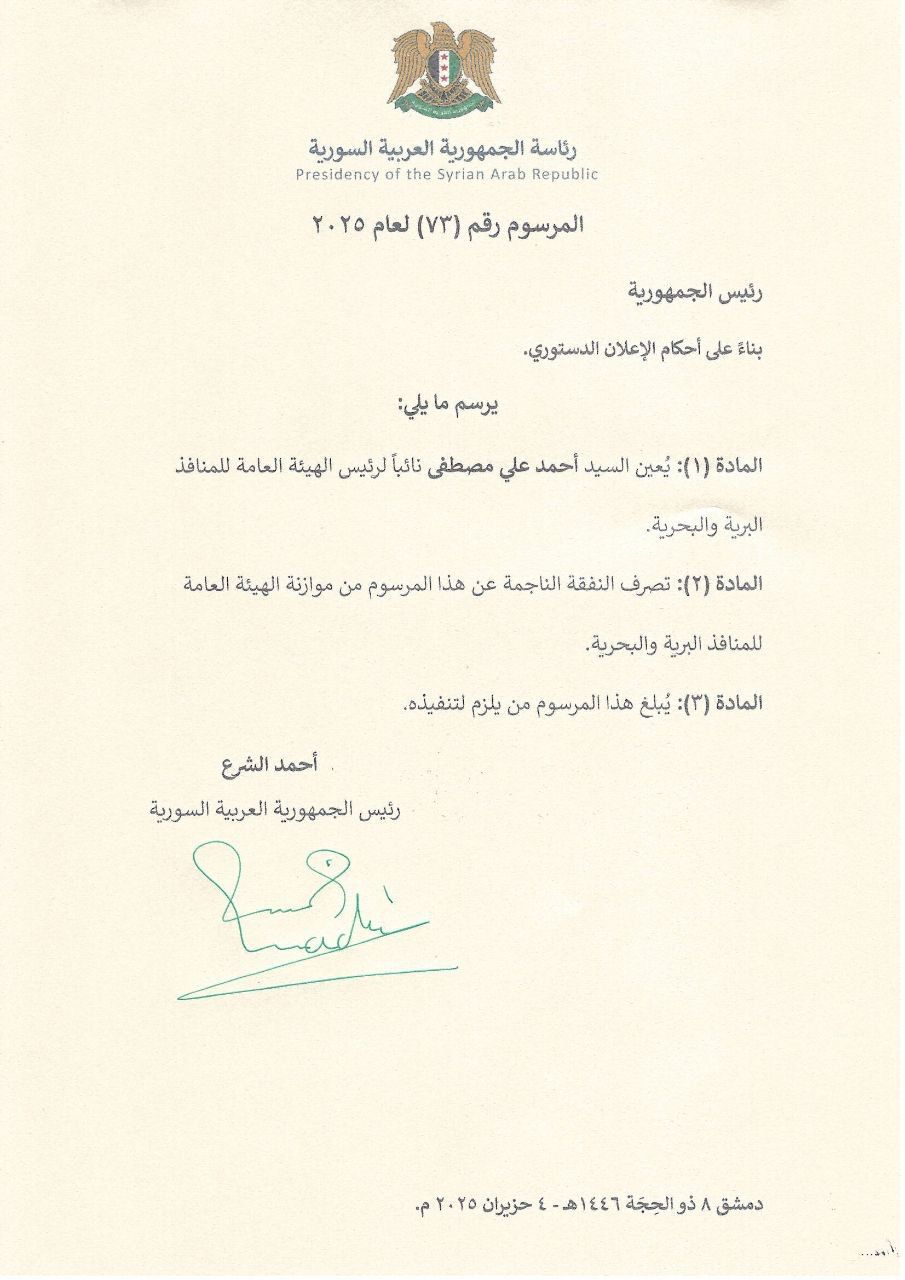 رئاسة الجمهورية العربية السورية
Presidency of the Syrian Arab Republic
المرسوم رقم (٧٣) لعام ٢٠٢٥
رئيس الجمهورية
بناءً على أحكام الإعلان الدستوري.
يرسم ما يلي:
المادة (١): يُعين السيد أحمد علي مصطفى نائباً لرئيس الهيئة العامة للمنافذ
البرية والبحرية.
المادة (٢): تصرف النفقة الناجمة عن هذا المرسوم من موازنة الهيئة العامة
للمنافذ البرية والبحرية.
المادة (٣): يُبلغ هذا المرسوم من يلزم لتنفيذه.
أحمد الشرع
رئيس الجمهورية العربية السورية
دمشق ٨ ذو الحِجَة ١٤٤٦هـ - ٤ حزيران ٢٠٢٥ م.